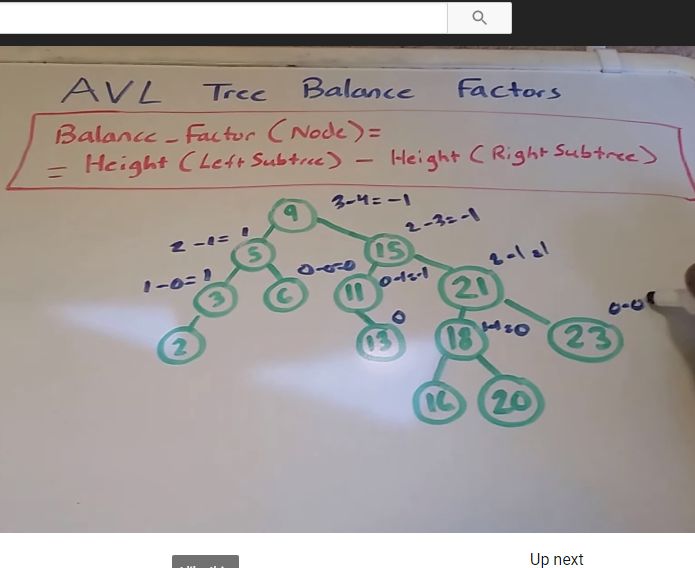 AVL Tree Balance Factors
Balance_Factor (Node)=
= Height (Left Subtree) - Height (Right Subtree)
9 3-4=-1
2-1=1 5 0-0=0 15 2-3=-1
1-0=1 3 6 11 0-1=-1 21 2-1=1
2 13 0 18 1-1=0 23 0-0
16 20
Up next